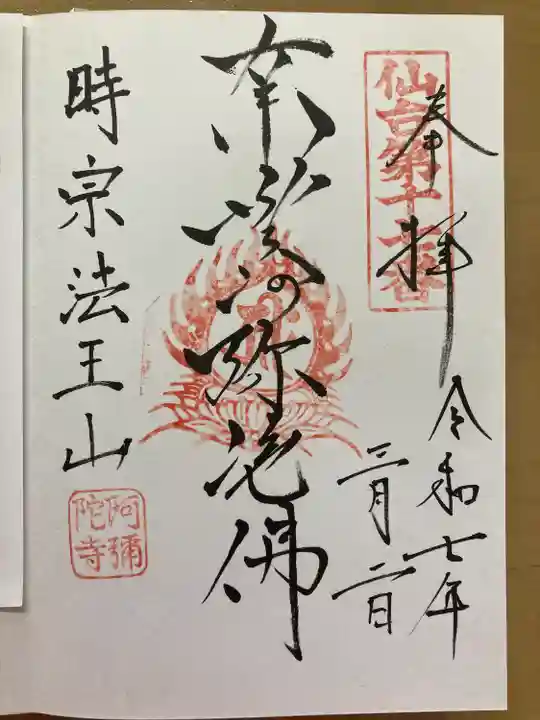 仙台第十七番
奉拝
令和七年
三月二日
南無阿弥陀佛
時宗法王山
阿彌陀寺